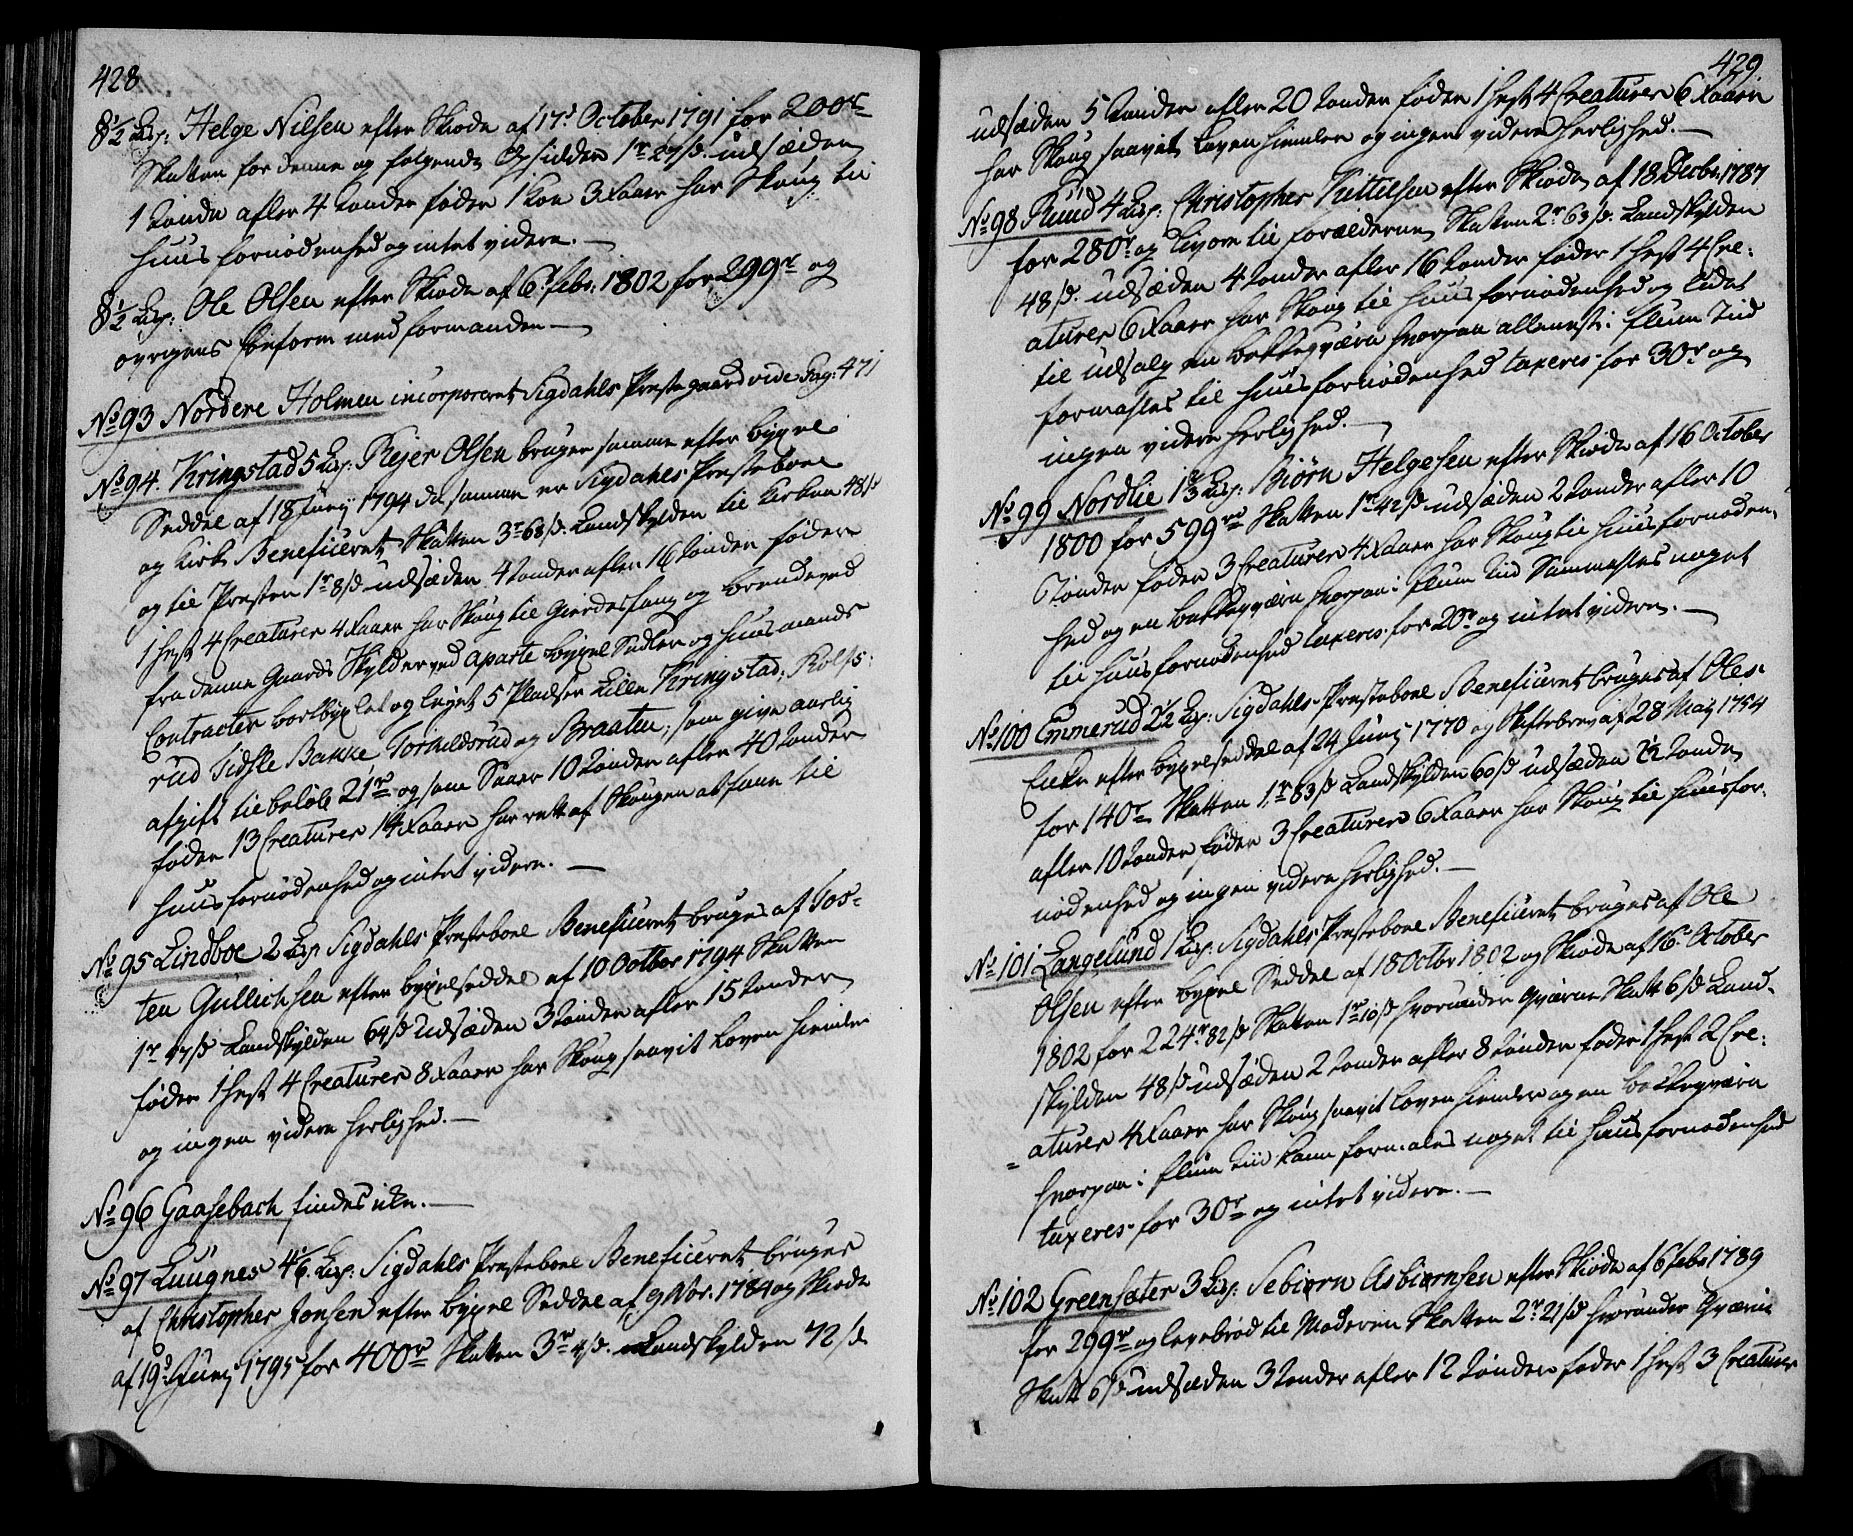 428
8 1/2 Lisp: Helge Nilsen efter Skiøde af 17d October 1791 for 200r
Skatten for denne og følgende Opsidder 1r 27/s. udsæden
1 tønde afler 4 tønder føder 1 koe 3 Faaer har Skoug til
huus fornødenhed og intet videre.
8 1/2 Lisp: Ole Olsen efter Skiøde af 6t febr: 1802 for 299r og
øvrigens Conform med formanden
No 93 Nordere Holmen incorporeret Sigdahls Præstegaard vide Pag: 471
No 94. Kringstad 5 Lisp: Rejer Olsen bruger samme efter bÿxel
Seddel af 18 Junÿ 1794 da samme er Sigdahls Præsteboel
og Kirk Beneficeret, Skatten 3r 68/s. Landskylden til Kirken 48/s
og til Præsten 1r 8/s udsæden 4 tønder afler 16 tønder føder
1 hest 4 Creaturer 4 Faaer har Skoug til Gierdesfang og brændeved
fra denne Gaards Skylder ved aparte bÿxel Sedler og huusmands
Contracter bortbÿxlet og leÿet 5 Pladser Lille Kringstad, Rolfs:
rud Tidsle Bakke, Torhildsrud og Braaten, som give aarlig
afgift til beløb 21r og som Saaer 10 tønder afler 40 tønder
føder 13 Creaturer 14 Faaer har ret af Skougen at faae til
huusfornødenhed og intet videre.
No 95 Lindboe 2 Lisp Sigdahls Præsteboel Beneficeret bruges af Tos-
ten Gullichsen efter bÿxelseddel af 10 October 1794 Skatten
1r 47/s Landskylden 64/s udsæden 3 tønder afler 15 tønder
føder 1 hest 4 Creaturer 8 Faaer har Skoug saavit Loven hiemler
og ingen videre herlighed.
No 96 Gaasebach findes ikke.
No 97 Luugnes 4 1/6. Lisp: Sigdahls Præsteboel Beneficeret bruges
af Christopher Jonsen efter bÿxel Seddel af 9 Nov: 1784 og Skiøde
af 19d Junÿ 1795 for 400r Skatten 3r 4/s. Landskylden 72/s
429
udsæden 5 tønder afler 20 tønder føder 1 hest 4 Creaturer 6 Faaer
har Skoug saavit Loven hiemler og ingen videre herlighed.
No 98 Ruud 4 Lisp: Christopher Kittilsen efter Skiøde af 18 Decbr: 1787
for 280r og Livøre til forælderne, Skatten 2r 63/s. Landskylden
48/s. udsæden 4 tønder afler 16 tønder føder 1 hest 4 Cre:
aturer 6 Faaer har Skoug til huus fornødenhed og lidet
til udsalg en bekkeqværn hvorpaa allene i flum tid
formahles til huusfornødenhed taxeres for 30r og
ingen videre herlighed.
No 99 Nordlie 1 2/3 Lisp: Biørn Helgesen efter Skiøde af 16 October
1800 for 599r Skatten 1r 42/s udsæden 2 tønder afler 10
tønder føder 3 Creaturer 4 Faaer har Skoug til huusfornøden-
hed og en bekkeqværn hvorpaa i flum tid Sammahles noget
til huusfornødenhed taxeres for 20r og intet videre.
No 100 Emmerud 2 1/2 Lisp: Sigdahls Præsteboel Beneficeret bruges af Oles
Enke efter bÿxelseddel af 24 Junÿ 1770 og Skiftebrev af 28 Maÿ 1754
for 140r Skatten 1r 83/s Landskylden 60/s udsæden 2 1/2 tønde
afler 10 tønder føder 3 Creaturer 6 Faaer har Skoug til huusfor-
nødenhed og ingen videre herlighed.
No 101 Langelund 1 Lisp: Sigdahls Præsteboel Beneficeret bruges af Ole
Olsen efter bÿxel Seddel af 18 Octbr 1802 og Skiøde af 16. October
1802 for 224r 82/s Skatten 1r 10/s hvorunder Qværne Skatt 6/s Land-
skylden 48/s udsæden 2 tønder afler 8 tønder føder 1 hest 2 Cre:
aturer 4 Faaer har Skoug saavit Loven hiemler og en bekkeqværn
hvorpaa i flum tiid kann formales noget til huusfornødenhed
taxeres for 30r og intet videre.
No 102 Greensæter 3 Lisp: Sebiørn Asbiørnsen efter Skiøde af 6 febr 1789
for 299r og levebrød til Moderen Skatten 2r 21/s hvorunder Qværne
Skatt 6/s udsæden 3 tønder afler 12 tønder føder 1 hest 3 Creaturer